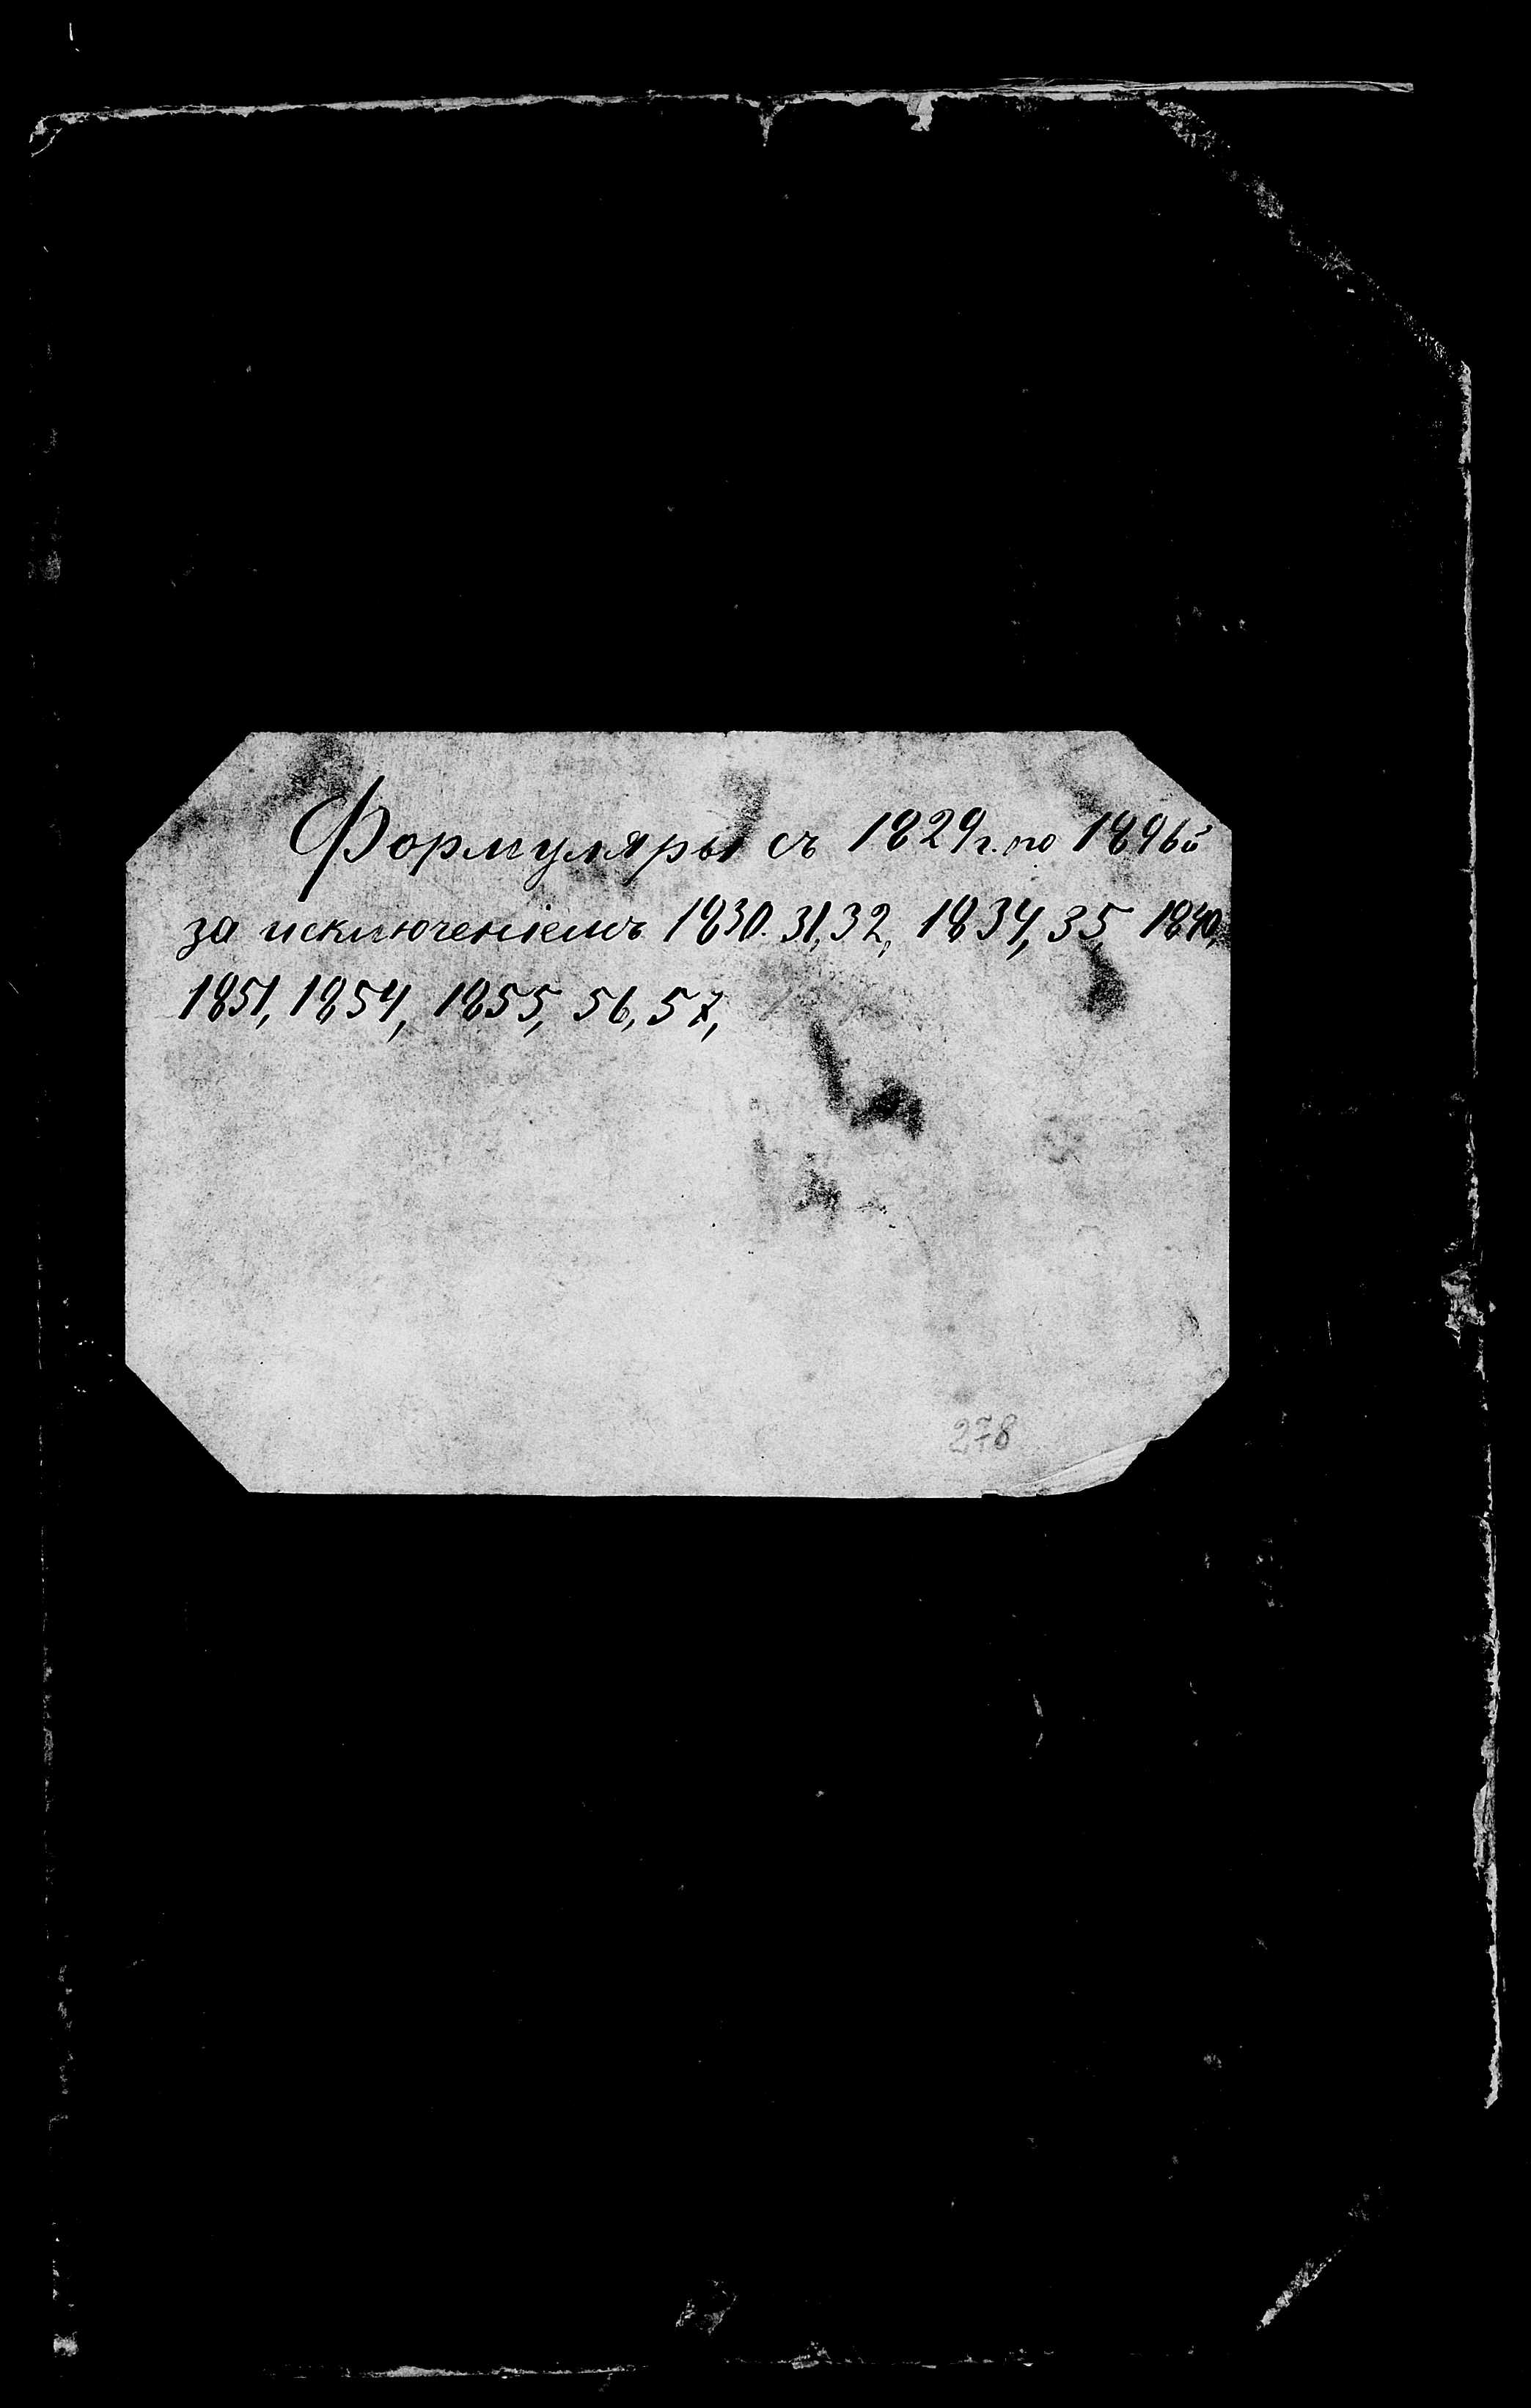 Формуляры съ 1829 г. по 1896 й
за исключеніемъ 1830. 31, 32, 1834, 35, 1840,
1851, 1854, 1855, 56, 57,
278